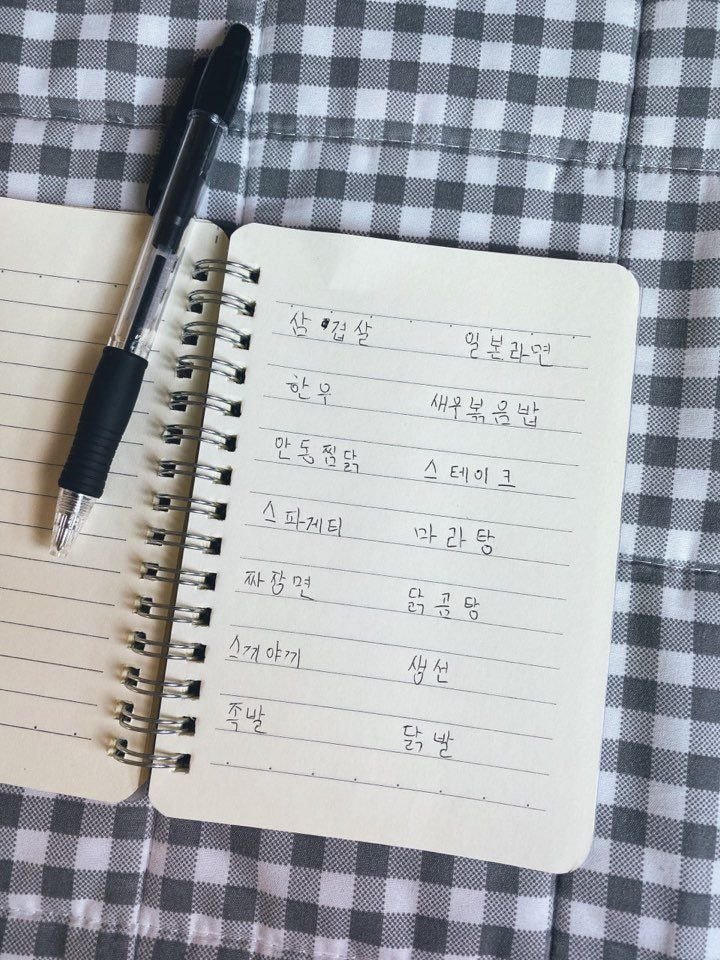 삼겹살 일본라면
한우 새우볶음밥
안동찜닭 스테이크
스파게티 마라탕
짜장면 닭곰탕
스끼야끼 생선
족발 닭발